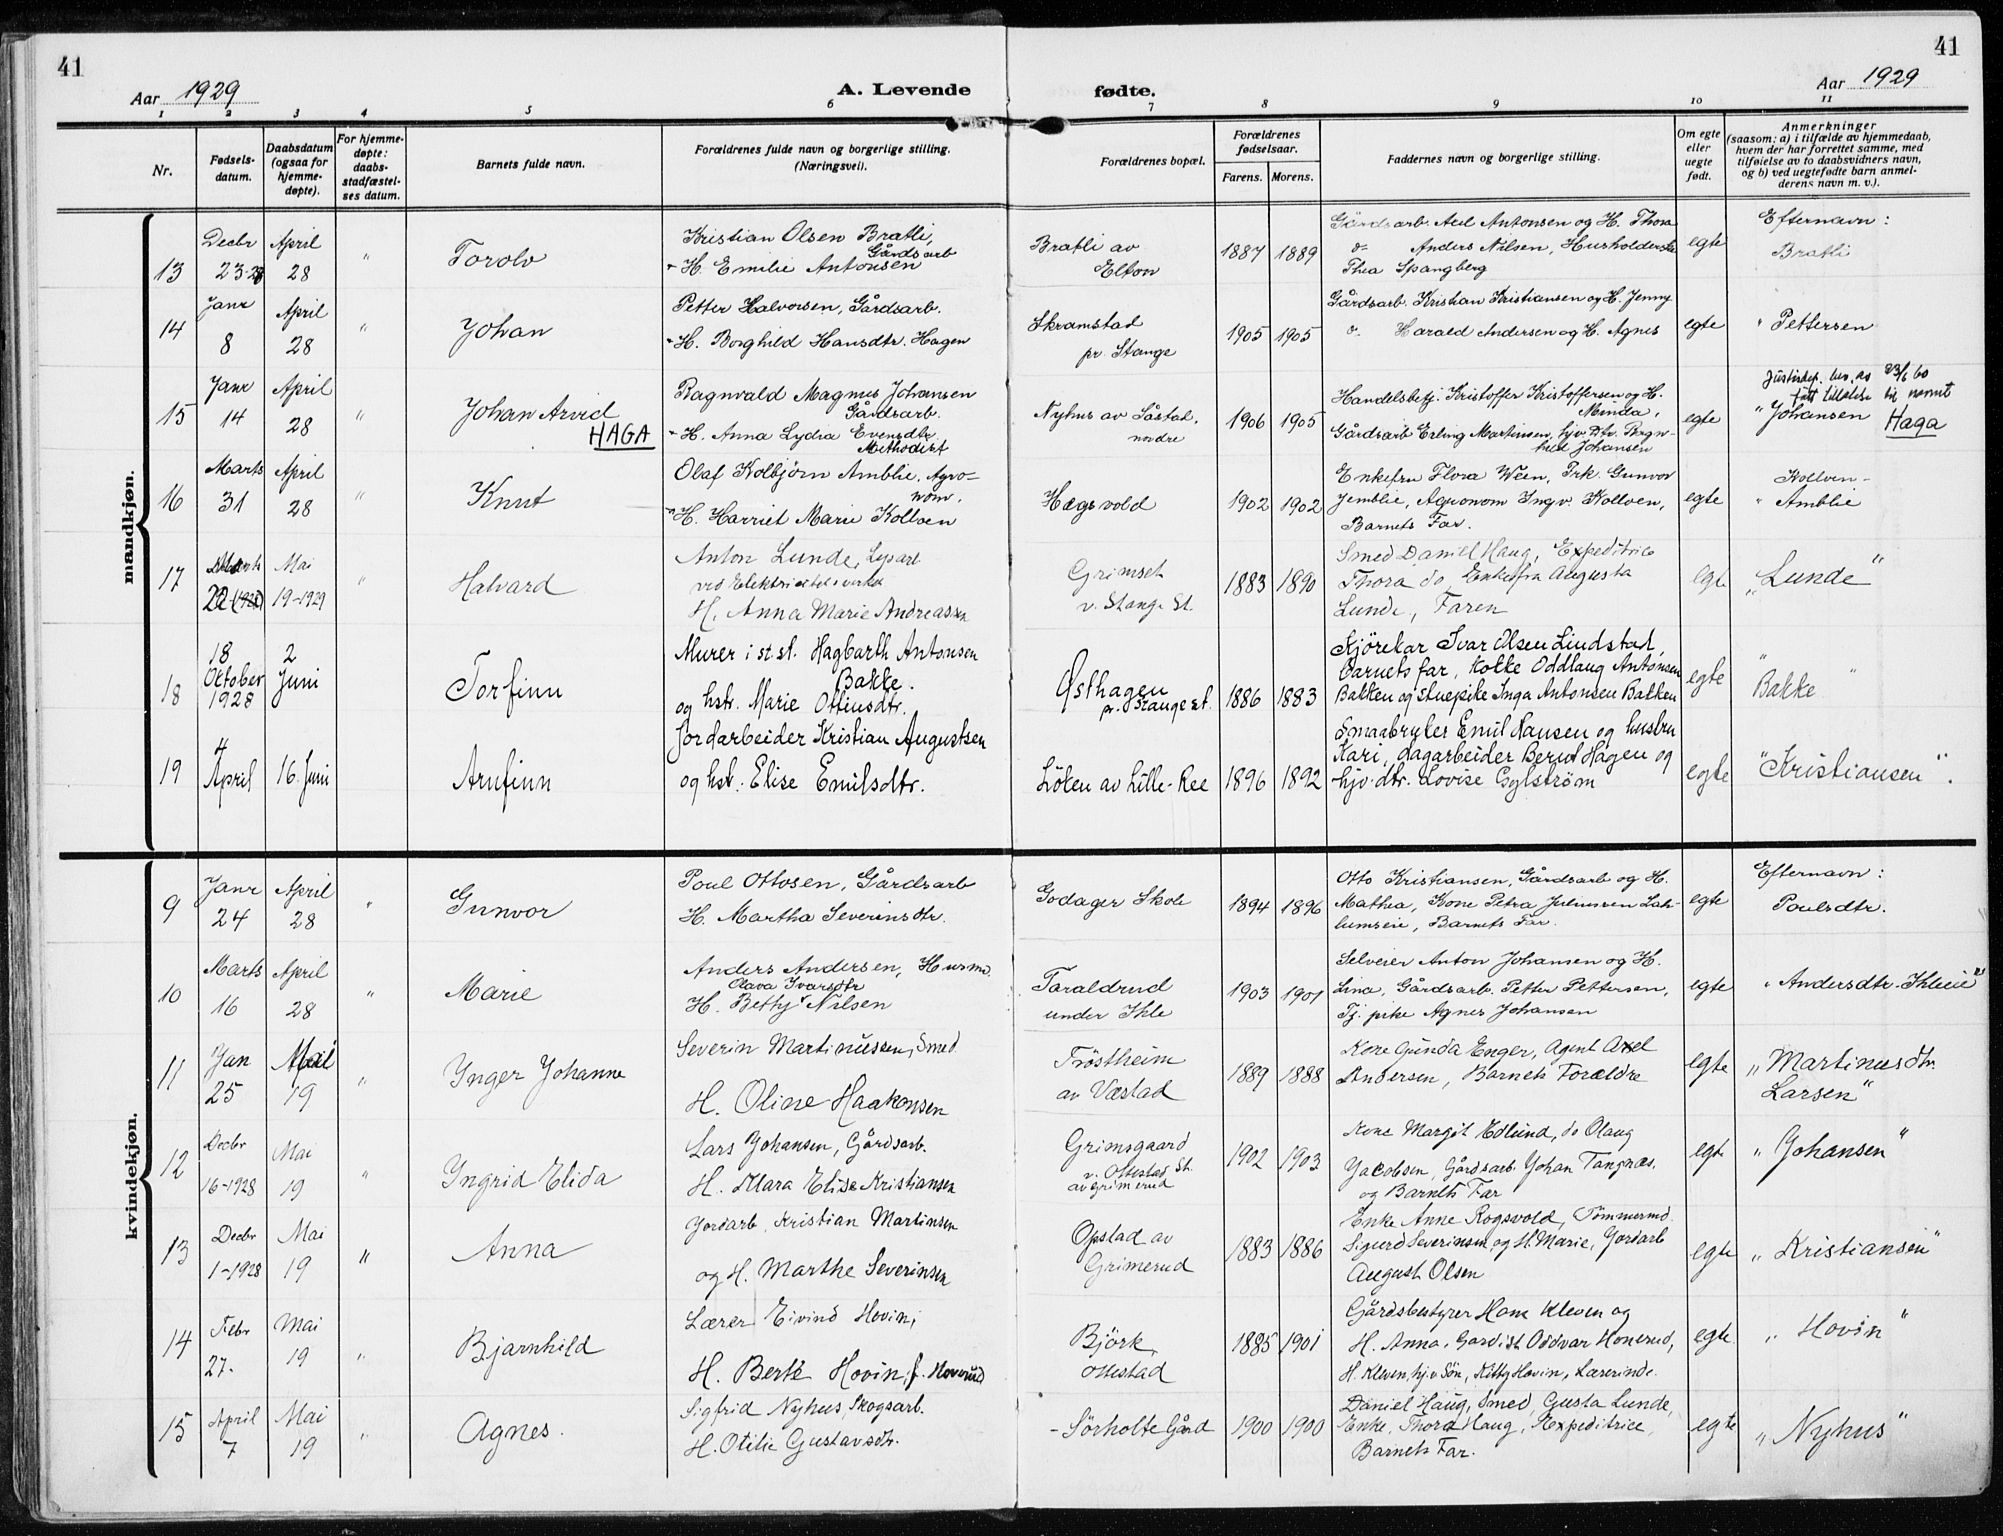 41
41
Aar 1929
A. Levende
fødte.
Aar 1929
1 2 3 4 5 6 7 8 9 10 11
Nr.
Fødsels-
datum.
Daabsdatum
(ogsaa for
hjemme-
døpte).
For hjemme-
døpte:
daabs-
stadfæstel-
ses datum.
Barnets fulde navn.
Forældrenes fulde navn og borgerlige stilling.
(Næringsvei).
Forældrenes bopæl.
Forældrenes
fødselsaar.
Farens. Morens.
Faddernes navn og borgerlige stilling.
Om egte
eller
uegte
født.
Anmerkninger
(saasom: a) i tilfælde av hjemmedaab,
hvem der har forrettet samme, med
tilføielse av to daabsvidners navn,
og b) ved uegtefødte barn anmel-
derens navn m. v.).
mandkjøn.
13
Decbr
23-28
April
28
"
Torolv
Kristian Olsen Bratli,
Gårdsarb
H. Emilie Antonsen
Bratli av
Elton
1887 1889
Gårdsarb. Axel Antonsen og H. Thora
Anders Nilsen, Husholderske
Thea Spangberg
egte
Efternavn:
Bratli
14
Janr
8
April
28
"
Johan
Petter Halvorsen, Gårdsarb.
H. Borghild Hansdtr. Hagen
Skramstad
pr. Stange
1905 1905
Gårdsarb. Kristian Kristiansen og H. Jenny
Harald Andersen og H. Agnes
egte
" Pettersen
15
Janr
14
April
28
"
Johan Arvid
HAGA
Ragnvald Magnus Johansen
Gårdsarb.
H. Anna Lydia Evensdtr.
Methodist
Nyhus av Såstad,
nordre
1906 1905
Handelsbetj. Kristoffer Kristoffersen og H.
Minda,
Gårdsarb Erling Martinsen, hjv. Dtr. Ragn-
hild Johansen
egte
Justisdep. bev. av 23/6 60
fått tillatelse til navnet
" Johansen Haga
16
Marts
31
April
28
"
Knut
Olaf Kolbjørn Amblie. Agro-
nom.
H. Harriet Marie Kollven
Hægsvold
1902 1902
Enkefru Flora Ween, Frk. Gunvor
Jemblie, Agronom Ingv. Kollven,
Barnets Far.
egte
Kollven-
" Amblie
17
22 (1928)
Mai
19-1929
"
Halvard
Anton Lunde,
ved Elektricitetsverket
H. Anna Marie Andreassen
Grimset
v. Stange St.
1883 1890
Smed Daniel Haug, Expeditrice
Thora do, Enkefru Augusta
Lunde, Faren
egte
"Lunde"
18
18
Oktober
1928
2
Juni
Torfinn
Murer i st.st. Hagbarth Antonsen
Bakke.
og hstr. Marie Ottinsdtr.
Østhagen
pr. Stange st.
1886 1883
Kjörekar Ivar Olsen Lindstad,
barnets far, kokke Oddlaug Antonsen
Bakken og stuepike Inga Antonsen Bakken
egte
"Bakke"
19
4
April
16. Juni
Arnfinn
Jordarbeider Kristian Augustsen
og hst. Elise Emilsdtr.
Löken av Lille-Ree
1896 1892
Smaabruker Emil Hansen og hustru
Kari, dagarbeider Bernt Hagen og
hjv. dtr. Lovise Gylström
egte
"Kristiansen".
kvindekjøn.
9
Janr
24
April
28
"
Gunvor
Poul Ottosen, Gårdsarb
H. Martha Severinsdtr.
Godager Skole
1894 1896
Otto Kristiansen, Gårdsarb og H.
Mathea, Kone Petra Juliussen Lah-
lumseie, Barnets Far.
egte
Efternavn:
Poulsdtr.
10
Marts
16
April
28
"
Marie
Anders Andersen, Husmd.
Olava Ivarsdtr
H. Betty Nilsen
Taraldrud
under Ihle
1903 1901
Selveier Anton Johansen og H.
Lina, Gårdsarb. Petter Pettersen,
Tj. pike Agnes Johansen
egte
" Andersdtr. Ihleeie"
11
Jan
25
Mai
19
"
Ynger Johanne
Severin Martinussen, Smed
H. Oline Haakonsen
Tröstheim
av Væstad
1889 1888
Kone Gunda Enger, Agent Axel
Andersen, Barnets Forældre
egte
"Martinusdtr.
Larsen"
12
Decbr
16-1928
Mai
19
"
Yngrid Elida
Lars Johansen, Gårdsarb.
H. Mara Elise Kristiansen
Grimsgaard
v. Ottestad St.
av Grimerud
1902 1903
Kone Margit Edlund, do Olaug
Jacobsen, Gårdsarb. Johan Tangnæs.
og Barnets Far
egte
" Johansen"
13
Decbr
1-1928
Mai
19
"
Anna
Jordarb. Kristian Martinsen
og H. Marthe Severinsen
Opstad av
Grimerud
1883 1886
Enke Anne Rogsvold, Tömmermd.
Sigurd Severinsen og H. Marie, Jordarb
August Olsen
egte
" Kristiansen"
14
Febr
27.
Mai
19
"
Bjarnhild
Lærer Eivind Hovin,
H. Berte Hovin, f. Honerud
Björk,
Ottestad
1885 1901
Gårdsbestyrer Hans Kleven og
H. Anna, Gardist Oddvar Honerud,
H. Kleven, hj.v. Sön, Kitty Hovin, Lærerinde.
egte
" Hovin"
15
April
7
Mai
19
"
Agnes.
Sigfrid Nyhus, Skogsarb.
H. Otilie Gustavsdtr.
-Sörholte Gård
1900 1900
Daniel Haug, Smed, Gusta Lunde,
Enke, Thora Haug, Expeditrice,
Barnets Far.
egte
" Nyhus"